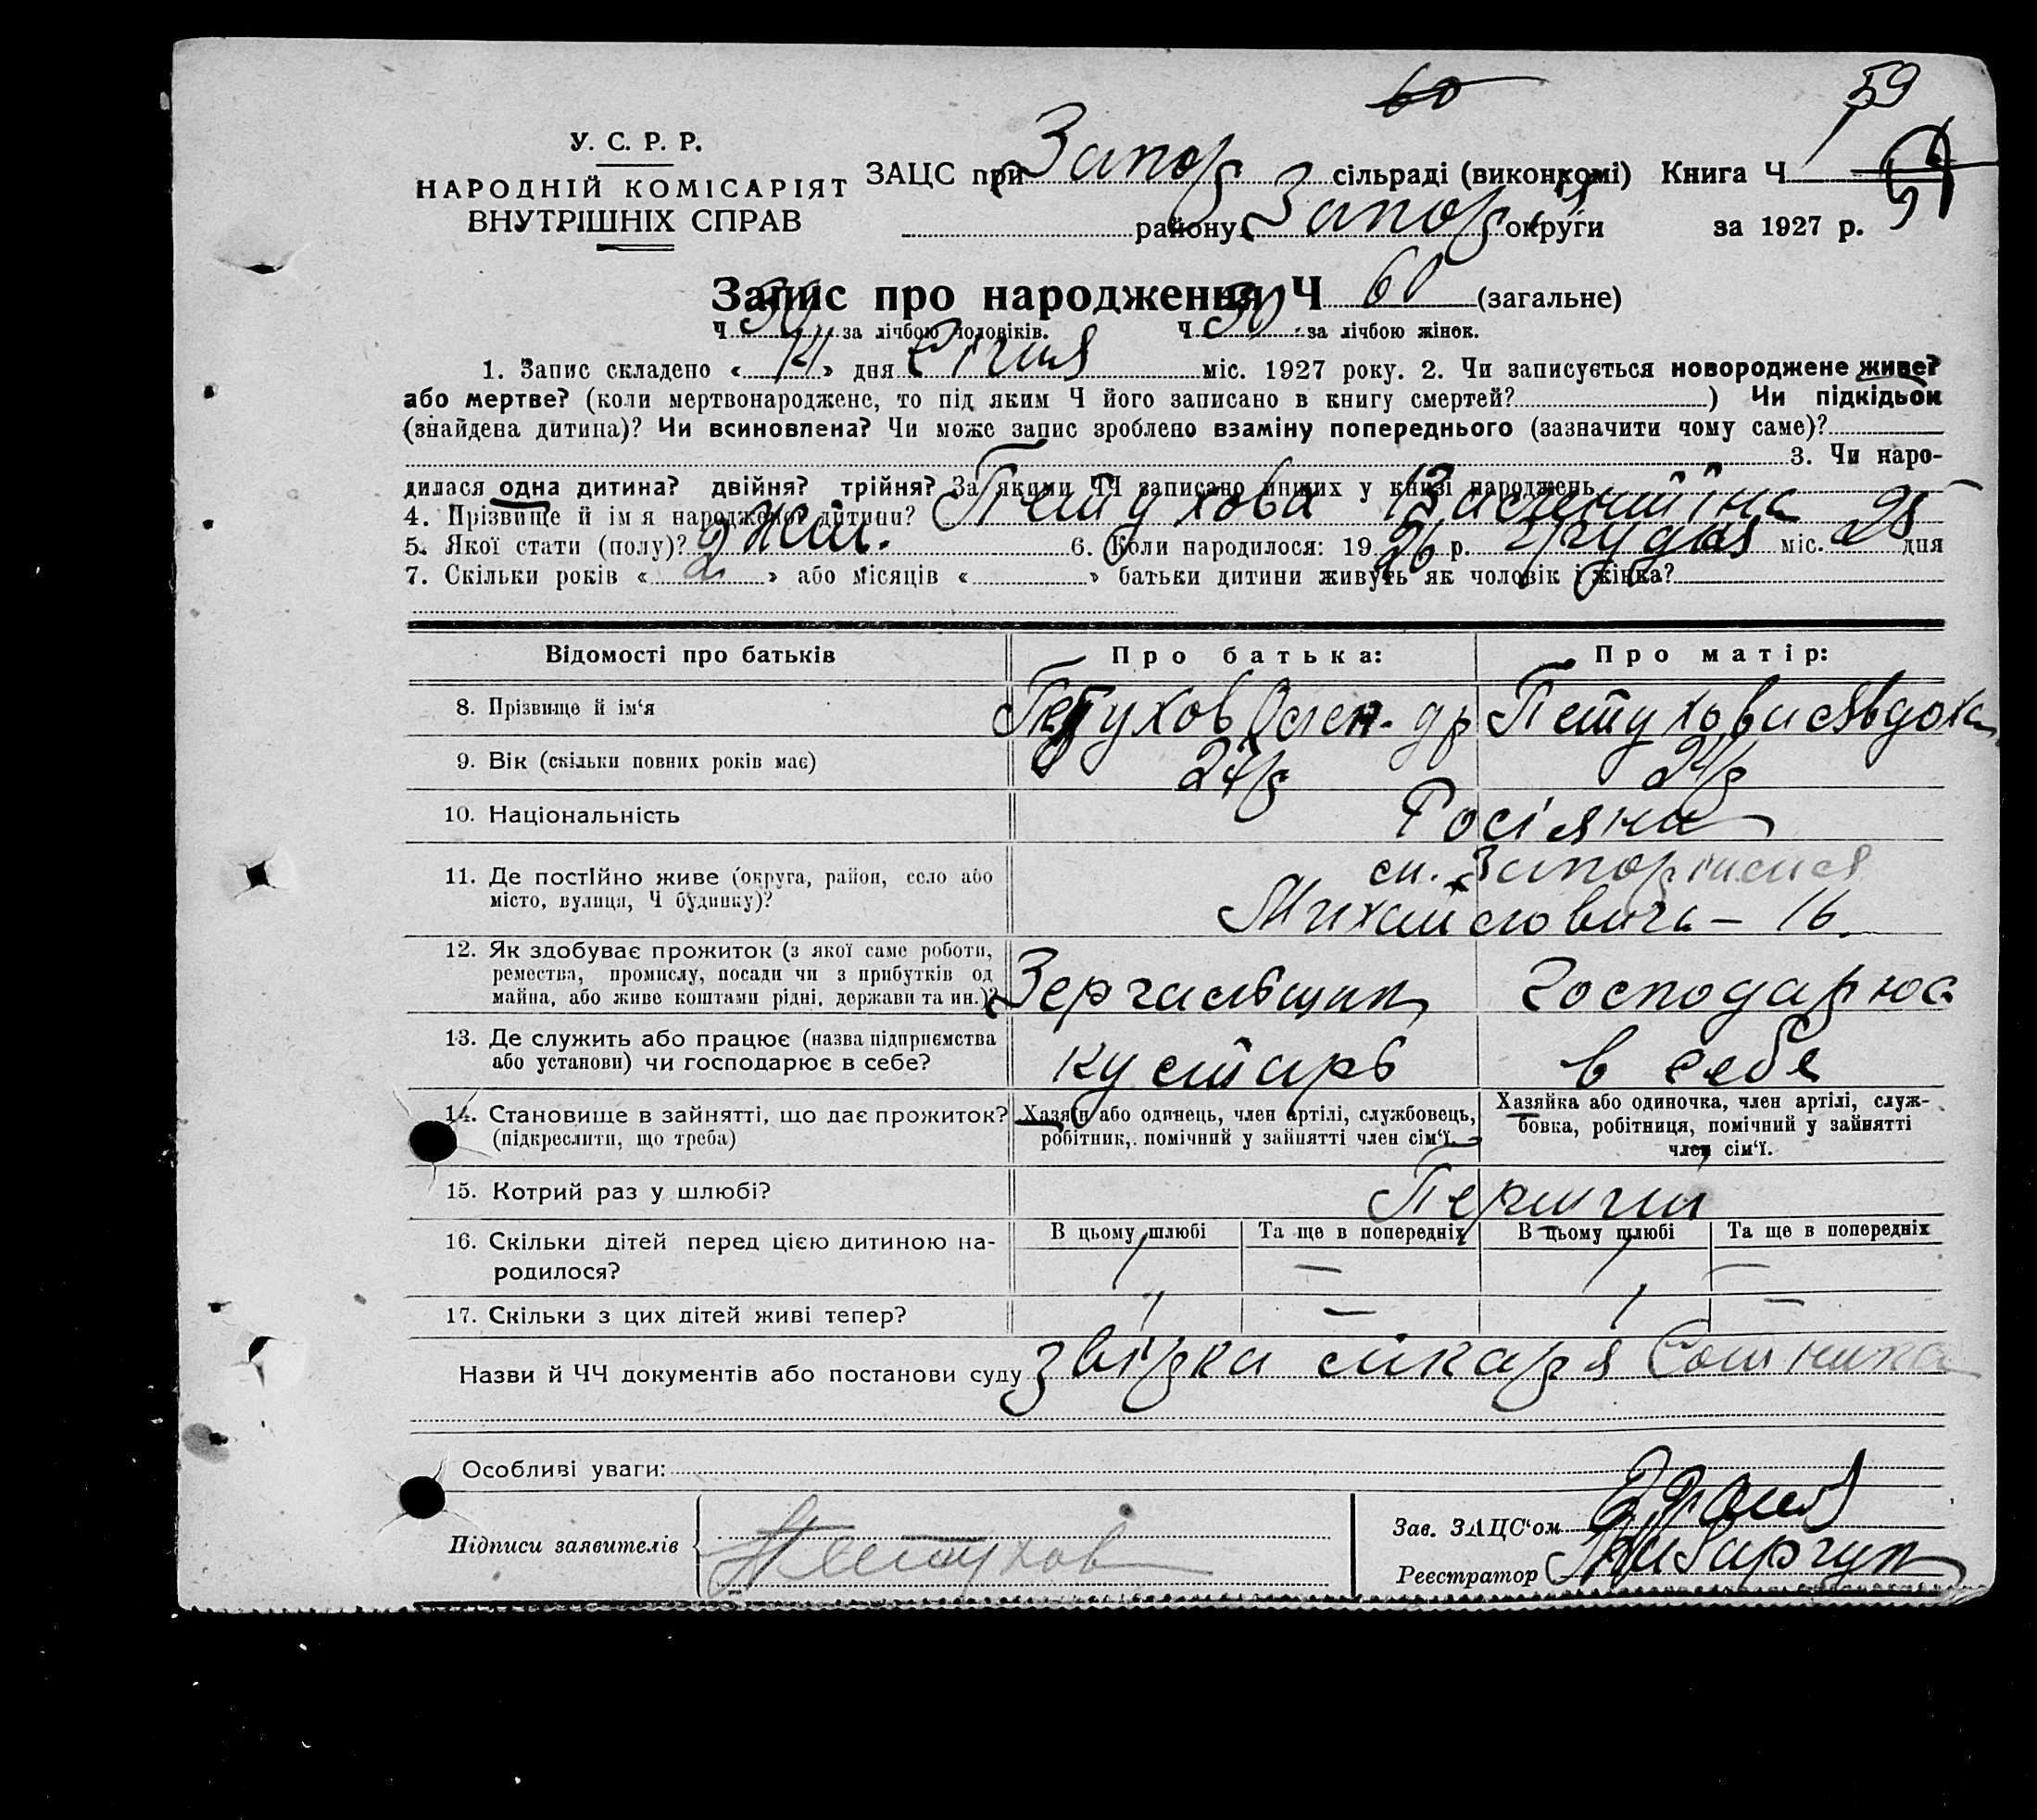 60
59
У. С. Р. Р.
НАРОДНІЙ КОМІСАРІЯТ
ВНУТРІШНІХ СПРАВ
ЗАЦС при Запор сільраді (виконкомі) Книга Ч
району Запор округи за 1927 р.
Запис про народження Ч 60 (загальне)
Ч 30 за лічбою чоловіків. Ч 30 за лічбою жінок.
1. Запис складено « 14 » дня Січня міс. 1927 року. 2. Чи записується новороджене живе?
або мертве? (коли мертвонароджене, то під яким Ч його записано в книгу смертей?) Чи підкідьок
(знайдена дитина)? Чи всиновлена? Чи може запис зроблено взаміну попереднього (зазначити чому саме)?
3. Чи наро-
дилася одна дитина? двійня? трійня? За якими ЧЧ записано инших у книзі народжень
4. Прізвище й ім'я народженої дитини? Петухова Валентіна
5. Якої стати (полу)? Жін. 6. Коли народилося: 1926 р. грудня міс. 25 дня
7. Скільки років « 2 » або місяців « » батьки дитини живуть як чоловік і жінка?
Відомості про батьків Про батька: Про матір:
8. Прізвище й ім'я Петухов Олек-др Петухова Явдоха
9. Вік (скільки повних років має) 27р 21р
10. Національність Росіяни
11. Де постійно живе (округа, район, село або
місто, вулиця, Ч будинку)? Михайловича – 16.
12. Як здобуває прожиток (з якої саме роботи,
ремества, промислу, посади чи з прибутків од
майна, або живе коштами рідні, держави та ин.)? Зеркальщик Господарює
13. Де служить або працює (назва підприємства
або установи) чи господарює в себе? кустарь в себе
14. Становище в зайнятті, що дає прожиток? Хазяїн або одинець, член артілі, службовець, Хазяйка або одиночка, член артілі, служ-
(підкреслити, що треба) робітник, помічний у зайнятті член сім'ї. бовка, робітниця, помічний у зайнятті
член сім'ї.
15. Котрий раз у шлюбі? Перший
16. Скільки дітей перед цією дитиною на- В цьому шлюбі Та ще в попередніх В цьому шлюбі Та ще в попередніх
родилося? 1 — 1 —
17. Скільки з цих дітей живі тепер? 1 — 1 —
Назви й ЧЧ документів або постанови суду звірка лікаря Сотника
Особливі уваги:
Підписи заявителів Петухов
Зав. ЗАЦС'ом
Реєстратор